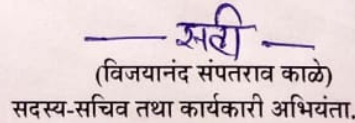 सही
(विजयानंद संपतराव काळे)
सदस्य-सचिव तथा कार्यकारी अभियंता,